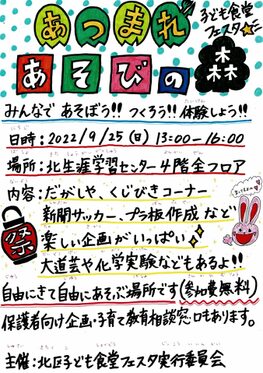 子ども食堂
フェスタ☆
あつまれ
あそびの森
みんなで あそぼう!! つくろう!! 体験しよう!!
日時:2022/9/25(日)13:00-16:00
場所:北生涯学習センター4階全フロア
内容:だがしや、くじびきコーナー
新聞サッカー、プラ板作成 など
祭
楽しい企画がいっぱい
大道芸や化学実験などもあるよ!!
自由にきて自由にあそぶ場所です(参加費無料)
保護者向け企画・子育て教育相談窓口もあります。
主催:北区子ども食堂フェスタ実行委員会